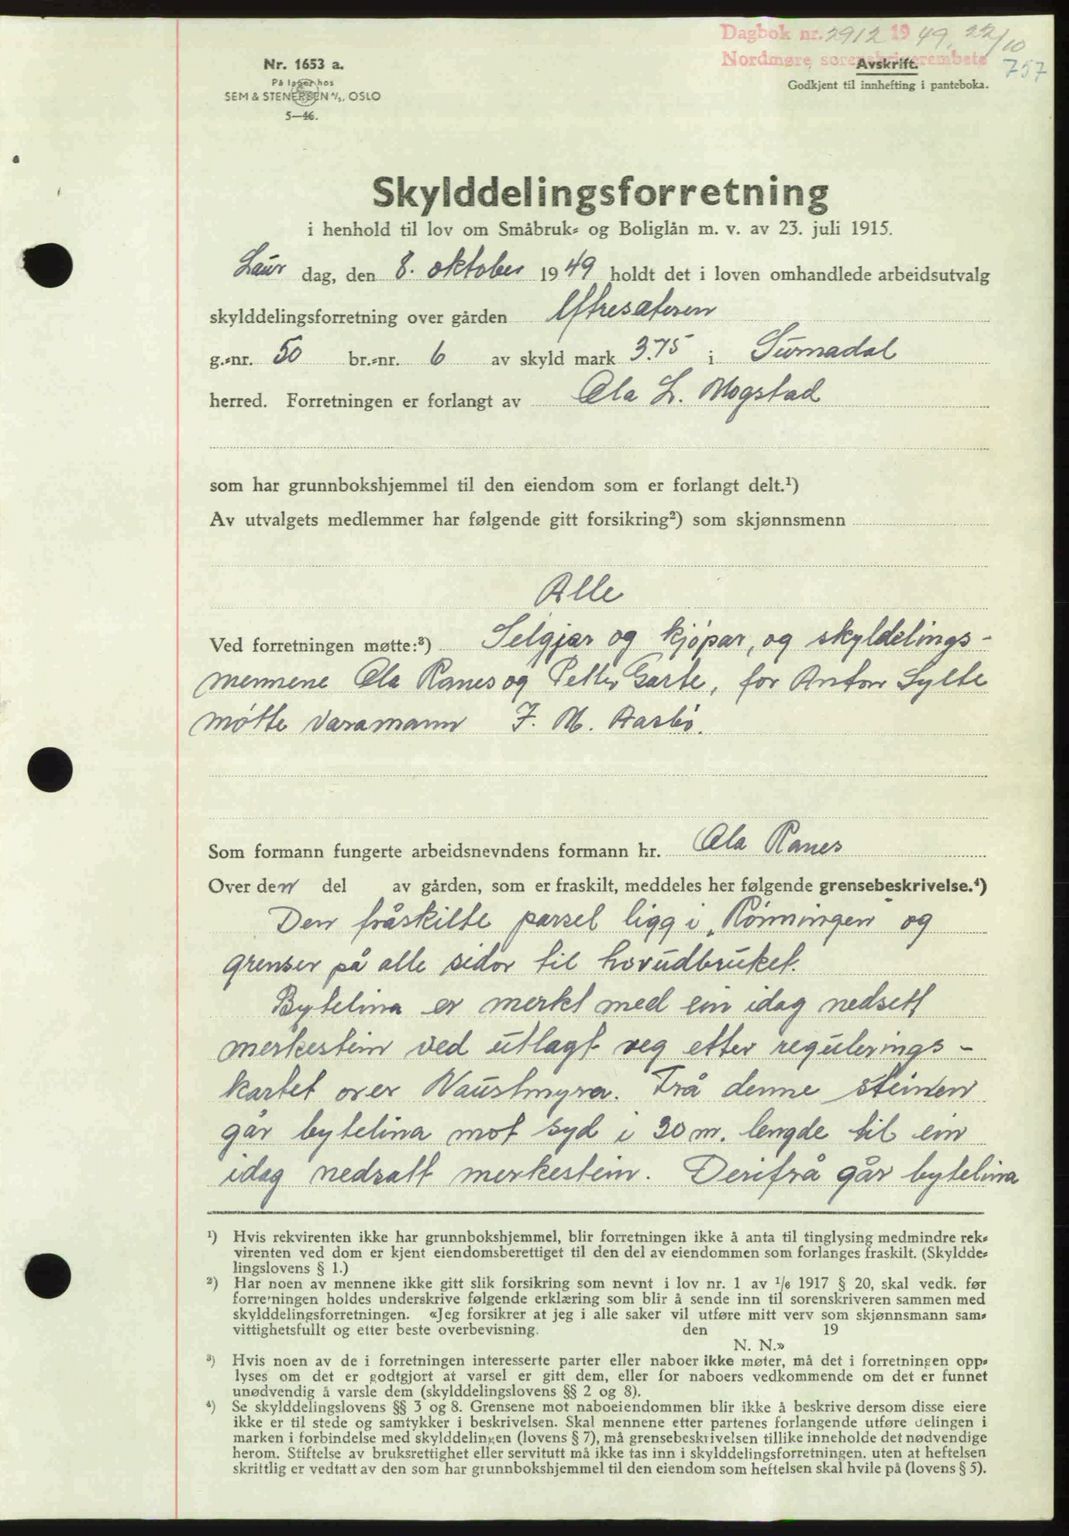 Dagbok nr. 2912 1949, 22/10
Nordmøre sorenskriverembete
757
Nr. 1653 a.
På lager hos
SEM & STENERSEN A/S, OSLO
5—46.
Avskrift.
Godkjent til innhefting i panteboka.
Skylddelingsforretning
i henhold til lov om Småbruk- og Boliglån m. v. av 23. juli 1915.
Laur dag, den 8. oktober 1949 holdt det i loven omhandlede arbeidsutvalg
skylddelingsforretning over gården Øfresæteren
g.-nr. 50 br.-nr. 6 av skyld mark 3.75 i Surnadal
herred. Forretningen er forlangt av Ola L. Mogstad
som har grunnbokshjemmel til den eiendom som er forlangt delt.¹)
Av utvalgets medlemmer har følgende gitt forsikring²) som skjønnsmenn
Alle
Ved forretningen møtte:³) Selgjar og kjøpar, og skyldelings-
mennene Ola Ranes og Petter Garte, for Anton Sylte
møtte varamann J. M. Aasbø.
Som formann fungerte arbeidsnevndens formann hr. Ola Ranes
Over den del av gården, som er fraskilt, meddeles her følgende grensebeskrivelse.⁴)
Den fråskilte parsel ligg i „Rønningen" og
grenser på alle sidor til hovudbruket.
Bytelina er merkt med ein idag nedsett
merkestein ved utlagt veg etter regulerings-
kartet over Naustmyra. Frå denne steinen
går bytelina mot syd i 30 m. lengde til ein
idag nedsatt merkestein. Derifrå går bytelina
¹) Hvis rekvirenten ikke har grunnbokshjemmel, blir forretningen ikke å anta til tinglysing medmindre rek-
virenten ved dom er kjent eiendomsberettiget til den del av eiendommen som forlanges fraskilt. (Skyldde-
lingslovens § 1.)
²) Har noen av mennene ikke gitt slik forsikring som nevnt i lov nr. 1 av 1/6 1917 § 20, skal vedk. før
forretningen holdes underskrive følgende erklæring som blir å sende inn til sorenskriveren sammen med
skylddelingsforretningen. «Jeg forsikrer at jeg i alle saker vil utføre mitt verv som skjønnsmann sam-
vittighetsfullt og etter beste overbevisning. den 19
N. N.»
³) Hvis noen av de i forretningen interesserte parter eller naboer ikke møter, må det i forretningen opp-
lyses om det er godtgjort at varsel er gitt dem, eller for naboers vedkommende om det er funnet
unødvendig å varsle dem (skylddelingslovens §§ 2 og 8).
⁴) Se skylddelingslovens §§ 3 og 8. Grensene mot naboeiendommen blir ikke å beskrive dersom disse eiere
ikke er til stede og samtykker i beskrivelsen. Skal mennene etter partenes forlangende utføre delingen i
marken i forbindelse med skylddelingen (lovens § 7), må grensebeskrivelsen tillike inneholde det nødvendige
herom. Stiftelse av bruksrettighet eller servitutt må ikke tas inn i skylddelingsforretningen, uten at heftelsen
skriftlig er vedtatt av den som har grunnbokshjemmel til den eiendom som heftelsen skal hvile på (lovens § 5).